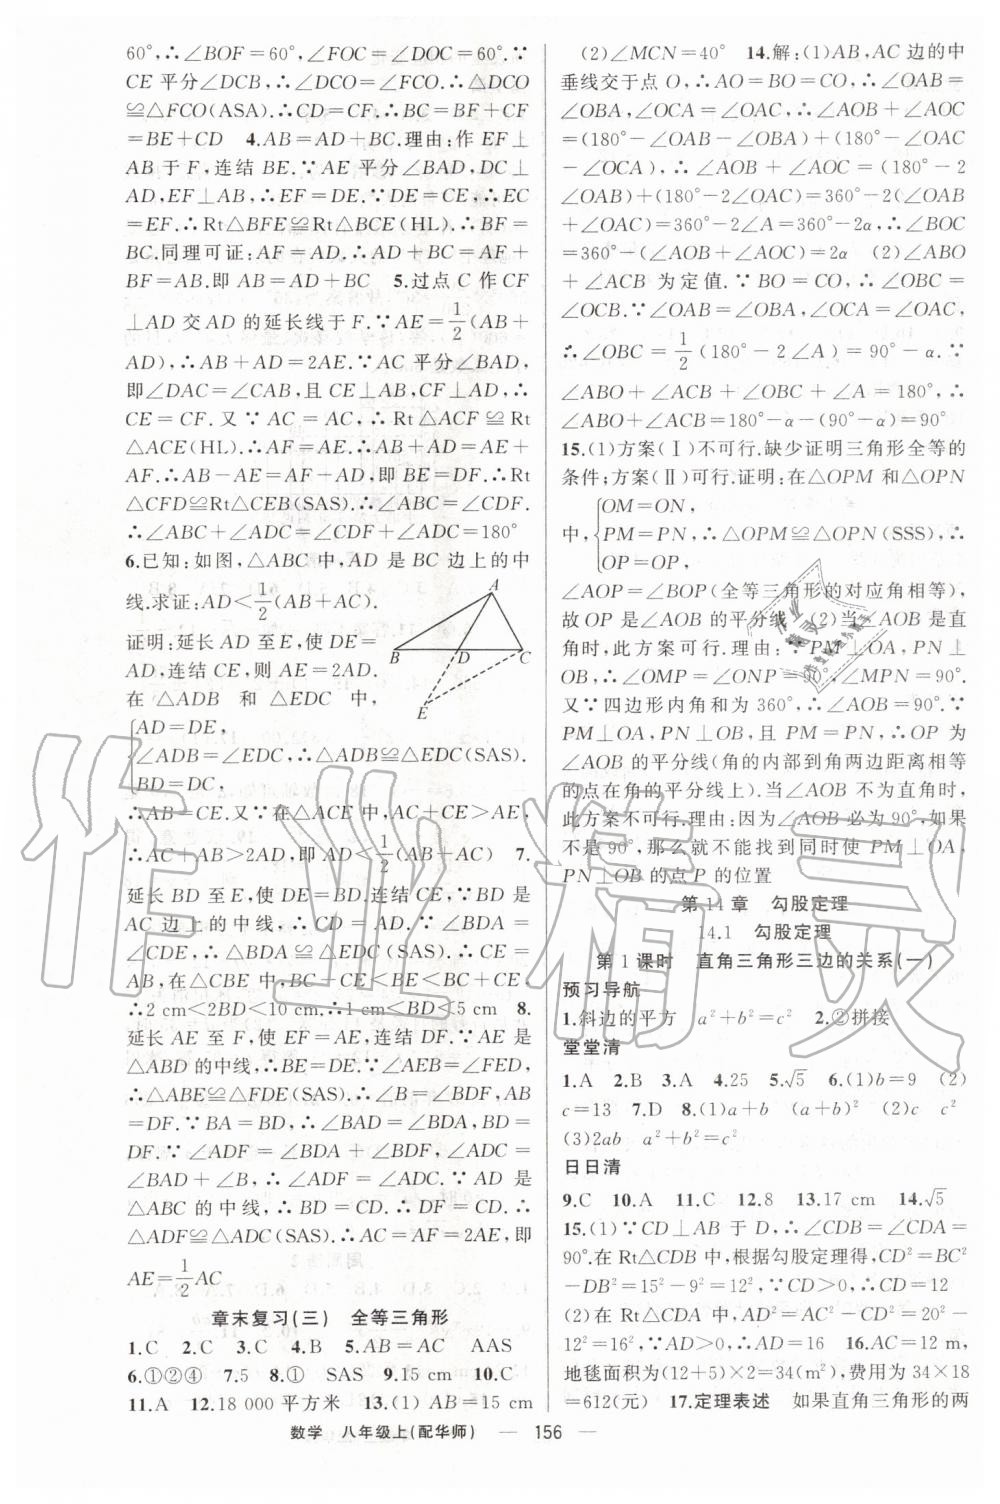 60°,∴∠BOF=60°,∠FOC=∠DOC=60°.∵
CE平分∠DCB,∴∠DCO=∠FCO.∴△DCO
≌△FCO(ASA).∴CD=CF.∴BC=BF+CF
=BE+CD 4.AB=AD+BC.理由:作EF⊥
AB于F,连结BE.∵AE平分∠BAD,DC⊥
AD,EF⊥AB,∴EF=DE.∵DE=CE,∴EC
=EF.∴Rt△BFE≌Rt△BCE(HL).∴BF=
BC.同理可证:AF=AD.∴AD+BC=AF+
BF=AB.即AB=AD+BC 5.过点C作CF
⊥AD交AD的延长线于F.∵AE=1/2(AB+
AD),∴AB+AD=2AE.∵AC平分∠BAD,
即∠DAC=∠CAB,且CE⊥AB,CF⊥AD,∴
CE=CF.又∵AC=AC,∴Rt△ACF≌Rt
△ACE(HL).∴AF=AE.∴AB+AD=AE+
AF.∴AB-AE=AF-AD,即BE=DF.∴Rt
△CFD≌Rt△CEB(SAS).∴∠ABC=∠CDF.
∴∠ABC+∠ADC=∠CDF+∠ADC=180°
6.已知:如图,△ABC中,AD是BC边上的中
线.求证:AD<1/2(AB+AC).
证明:延长AD至E,使DE=
AD,连结CE,则AE=2AD.
在△ADB和△EDC中,
{AD=DE,
∠ADB=∠EDC,∴△ADB≌△EDC(SAS).
BD=DC,
∴AB=CE.又∵在△ACE中,AC+CE>AE,
∴AC+AB>2AD,即AD<1/2(AB+AC) 7.
延长BD至E,使DE=BD,连结CE,∵BD是
AC边上的中线,∴AD=CD.∵∠BDA=
∠CDE,∴△ABD≌△EDC(SAS).∴CE=
AB,在△CBE中,BC-CE<BE<BC+CE,
∴2 cm<2BD<10 cm.∴1 cm<BD<5 cm 8.
延长AE至F,使EF=AE,连结DF.∵AE是
△ABD的中线,∴BE=DE.∵∠AEB=∠FED,
∴△ABE≌△FDE(SAS).∴∠B=∠BDF,AB=
DF.∵BA=BD,∴∠BAD=∠BDA,BD=
DF.∵∠ADF=∠BDA+∠BDF,∠ADC=
∠BAD+∠B,∴∠ADF=∠ADC.∵AD是
△ABC的中线,∴BD=CD.∴DF=CD.∴
△ADF≌△ADC(SAS).∴AC=AF=2AE,即
AE=1/2AC
章末复习(三) 全等三角形
1.C 2.C 3.C 4.B 5.AB=AC AAS
6.①②④ 7.5 8.① SAS 9.15 cm 10.C
11.A 12.18 000平方米 13.(1)AB=15 cm
A
B
D
C
E
(2)∠MCN=40° 14.解:(1)AB,AC边的中
垂线交于点O,∴AO=BO=CO,∴∠OAB=
∠OBA,∠OCA=∠OAC,∴∠AOB+∠AOC
=(180°-∠OAB-∠OBA)+(180°-∠OAC
-∠OCA),∴∠AOB+∠AOC=(180°-2
∠OAB)+(180°-2∠OAC)=360°-2(∠OAB
+∠OAC)=360°-2∠A=360°-2α,∴∠BOC=
360°-(∠AOB+∠AOC)=2α (2)∠ABO
+∠ACB为定值.∵BO=CO,∴∠OBC=
∠OCB.∵∠OAB=∠OBA,∠OCA=∠OAC,
∴∠OBC=1/2(180°-2∠A)=90°-α.∵
∠ABO+∠ACB+∠OBC+∠A=180°,∴
∠ABO+∠ACB=180°-α-(90°-α)=90°
15.(1)方案(Ⅰ)不可行.缺少证明三角形全等的
条件;方案(Ⅱ)可行.证明:在△OPM和△OPN
{OM=ON,
中,PM=PN,∴△OPM≌△OPN(SSS),∴
OP=OP,
∠AOP=∠BOP(全等三角形的对应角相等),
故OP是∠AOB的平分线 (2)当∠AOB是直
角时,此方案可行.理由:∵PM⊥OA,PN⊥
OB,∴∠OMP=∠ONP=90°,∠MPN=90°.
又∵四边形内角和为360°,∴∠AOB=90°.∵
PM⊥OA,PN⊥OB,且PM=PN,∴OP为
∠AOB的平分线(角的内部到角两边距离相等
的点在角的平分线上).当∠AOB不为直角时,
此方案不可行.理由:因为∠AOB必为90°,如果
不是90°,那么就不能找到同时使PM⊥OA,
PN⊥OB的点P的位置
第14章 勾股定理
14.1 勾股定理
第1课时 直角三角形三边的关系(一)
预习导航
1.斜边的平方 a²+b²=c² 2.②拼接
堂堂清
1.A 2.B 3.A 4.25 5.√5 6.(1)b=9 (2)
c=13 7.D 8.(1)a+b (a+b)² (2)c c²
(3)2ab a²+b²=c²
日日清
9.C 10.A 11.C 12.8 13.17 cm 14.√5
15.(1)∵CD⊥AB于D,∴∠CDB=∠CDA=
90°.在Rt△CDB中,根据勾股定理得,CD²=BC²
-DB²=15²-9²=12²,∵CD>0,∴CD=12
(2)在Rt△CDA中,AD²=AC²-CD²=20²-
12²=16²,∵AD>0,∴AD=16 16.AC=12 m,
地毯面积为(12+5)×2=34(m²),费用为34×18
=612(元) 17.定理表述 如果直角三角形的两
数学 八年级上(配华师) — 156 —
作业精灵